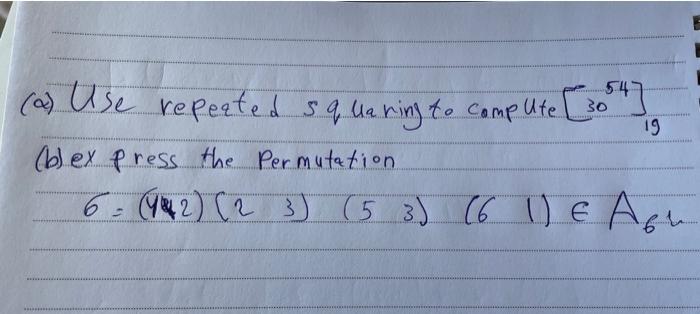 (a) Use repeated squaring to compute [30^54]_19
(b) express the Permutation
σ = (4 2) (2 3) (5 3) (6 1) ∈ A6